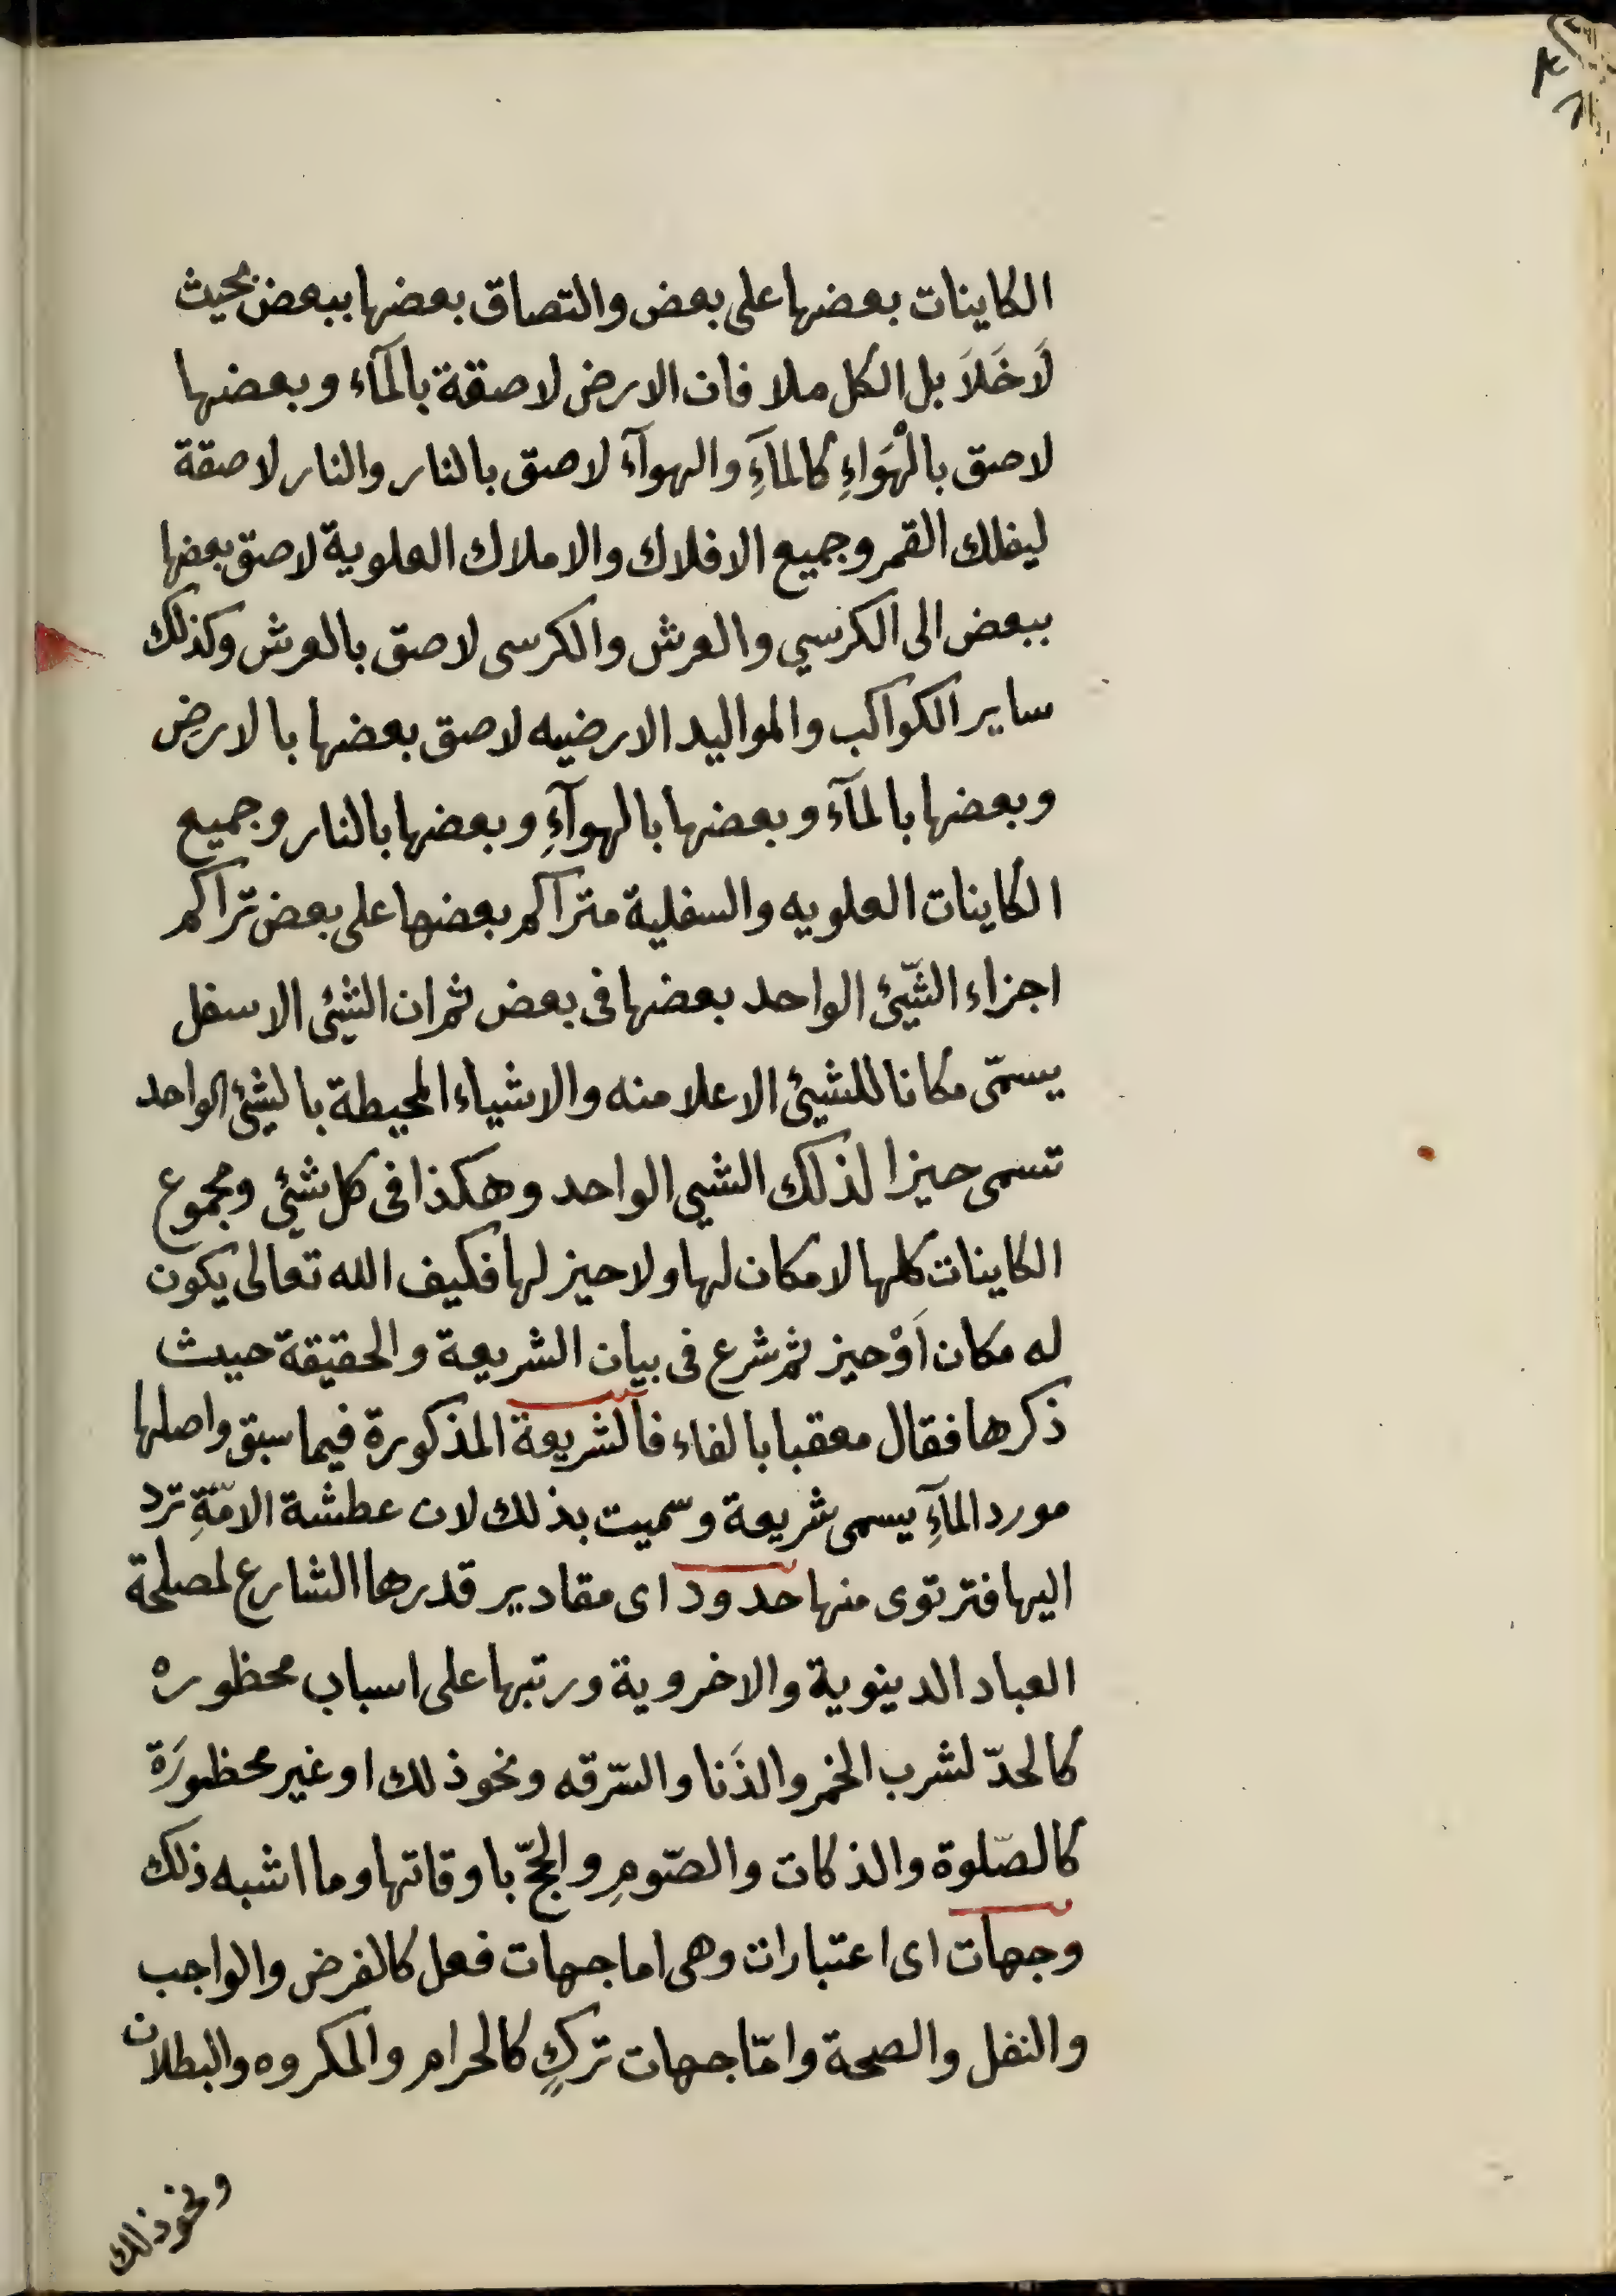 الكاينات بعضها على بعض والتصاق بعضها ببعض بحيث
لَاخَلَاَ بل الكل ملا فان الارض لاصقة بالمآء وبعضها
لاصق بالْهَوَاءِ كالمآءِ والهوآء لاصق بالنار والنار لاصقة
ليفلك القمر وجميع الافلاك والاملاك العلوية لاصق بعضها
ببعض الى الكرسي والعرش والكرسى لاصق بالعرش وكذلك
ساير الكواكب والمواليد الارضيه لاصق بعضها بالارضِ
وبعضها بالمآء وبعضها بالهوآءِ وبعضها بالنار وجميع
الكاينات العلويه والسفلية متراكم بعضها على بعض تراكم
اجزاء الشّيئ الواحد بعضها فى بعض ثم ان الشيئ الاسفل
يسمّى مكانا للشيئ الاعلا منه والاشياء المحيطة بالشيئ الواحد
تسمى حيزا لذلك الشيى الواحد وهكذا فى كل شيئ ومجموع
الكاينات كلها لامكان لها ولا حيز لها فكيف الله تعالى يكون
له مكان اَوْحيز ثم شرع فى بيان الشريعة والحقيقة حيث
ذكرها فقال معقبا بالفاء فالشريعة المذكورة فيما سبق واصلها
مورد المآءِ يسمى شريعة وسميت بذلك لان عطشة الامّةِ ترد
اليها فترتوى منها حدود اى مقادير قدرها الشارع لمصلحة
العباد الدينوية والاخروية ورتبها على اسباب محظوره
كالحدّ لشرب الخمر والذَنا والسّرقه ونحوذلك اوغير محظورَة
كالصّلوة والذكات والصّومِ والحجّ باوقاتها وما اشبه ذلك
وجهات اى اعتبارات وهى اما جهات فعل كالفرض والواجب
والنفل والصحة وامّا جهات تركٍ كالحرام والمكروه والبطلان
ونحوذلك